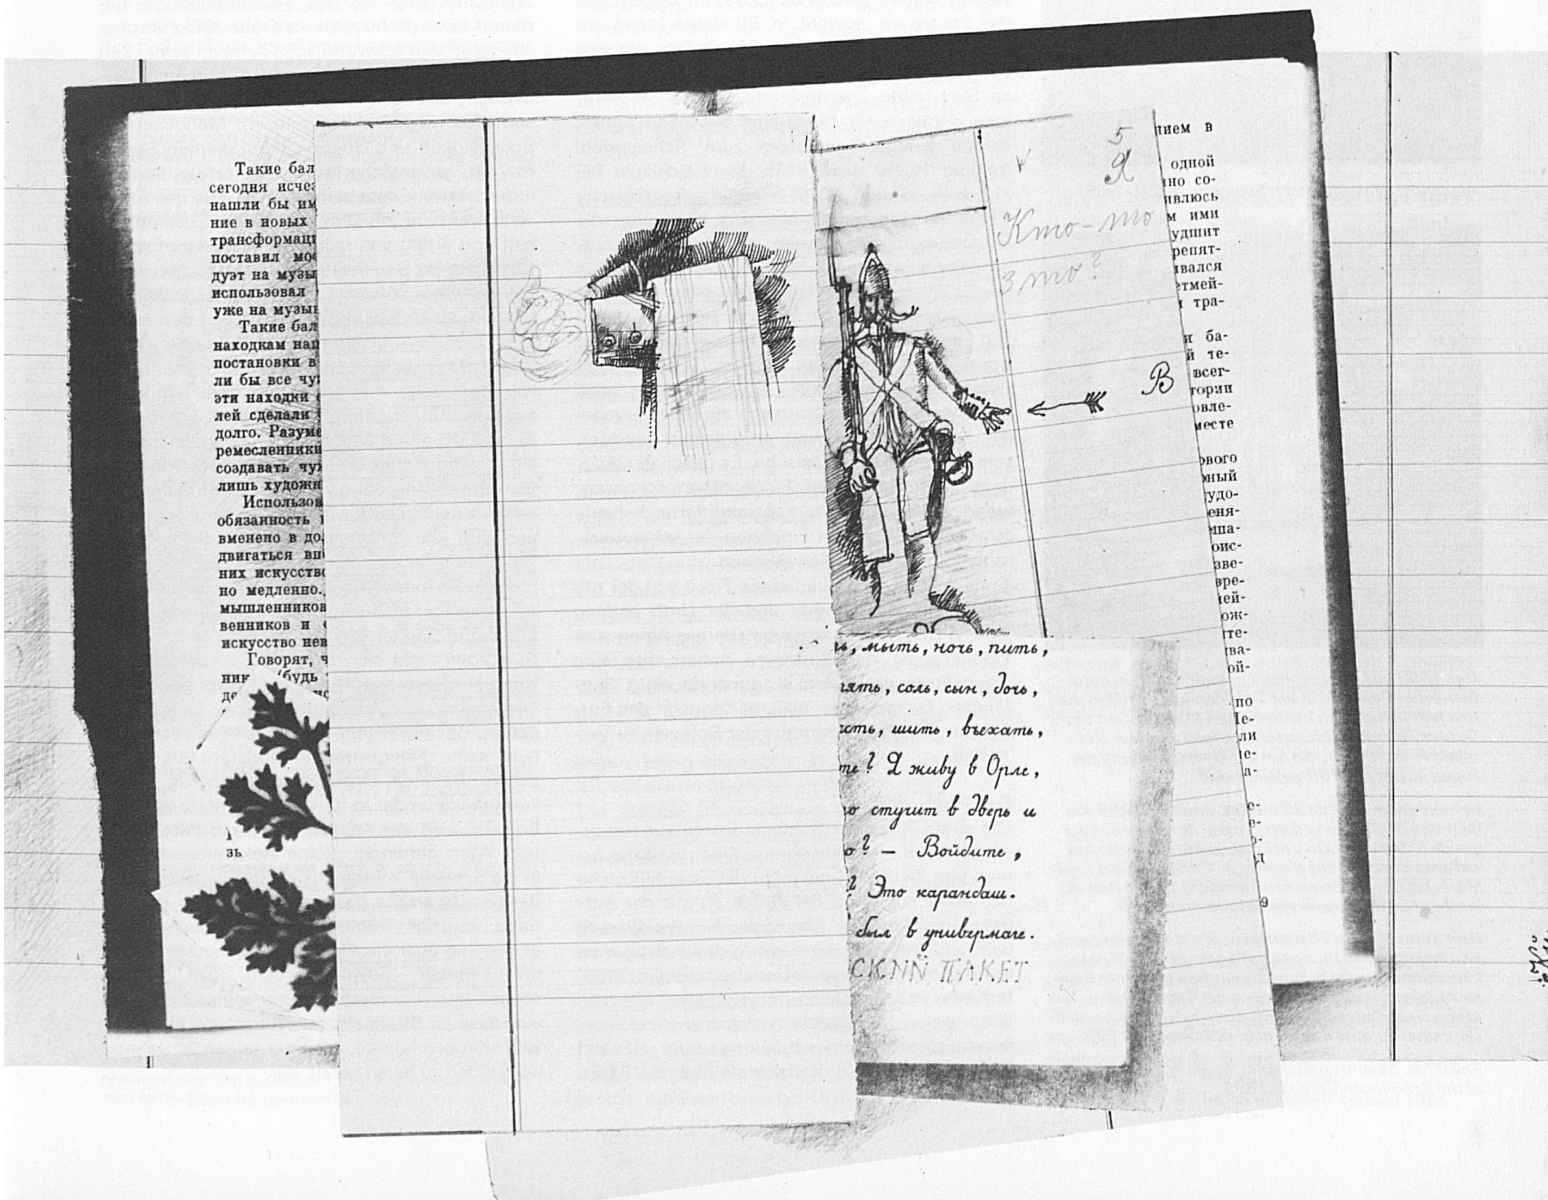 Такие бал
сегодня исчез
нашли бы им
ние в новых
трансформаци
поставил мо
дуэт на музы
использовал
уже на музы
Такие бал
находкам наш
постановки в
ли бы все чу
эти находки
лей сделали
долго. Разуме
ремесленники
создавать чу
лишь художн
Использов
обязанность
вменено в до
двигаться вп
них искусств
но медленно.
мышленников
венников и
искусство нев
Говорят, ч
ник будь
зь
5
Я
Кто-то
это?
В
ь, мыть, ночь, пить,
ять, соль, сын, дочь,
сть, шить, въехать,
те? Я живу в Орле,
о стучит в дверь и
о? — Войдите,
? Это карандаш.
был в универмаге.
СКИЙ ПАКЕТ
нием в
одной
но со-
ивлюсь
м ими
удшит
репят-
ивался
етмей-
и тра-
и ба-
й те-
всег-
тории
овле-
месте
ового
ный
удо-
еня-
ша-
оис-
зве-
вре-
ей-
ож-
те-
ва-
ой-
по
Не-
ли
е-
а-
е-
е-
о-
д
9